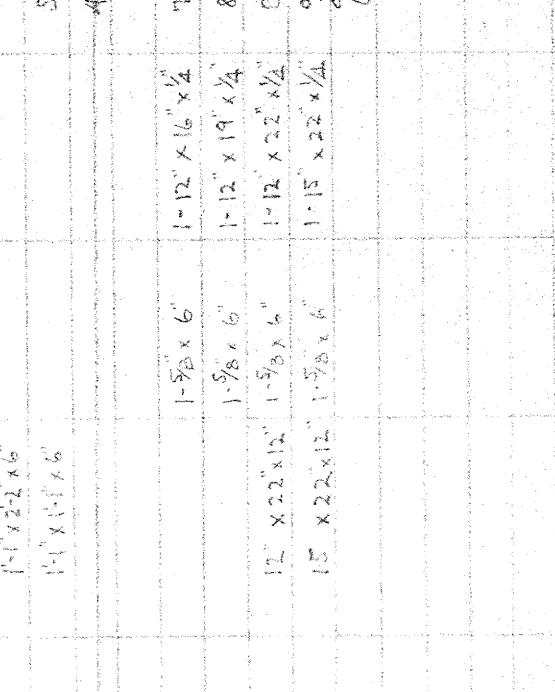 1'-1" x 2'-2" x 6"
5
1'-1" x 1'-1" x 6"
1-5/8 x 6" 1-12" x 16" x 1/4" 7
1-5/8 x 6" 1-12" x 19" x 1/4" 8
12" x 22" x 12" 1-5/8 x 6" 1-12" x 22" x 1/4"
15 x 22" x 12" 1-5/8 x 6" 1-15" x 22" x 1/4"